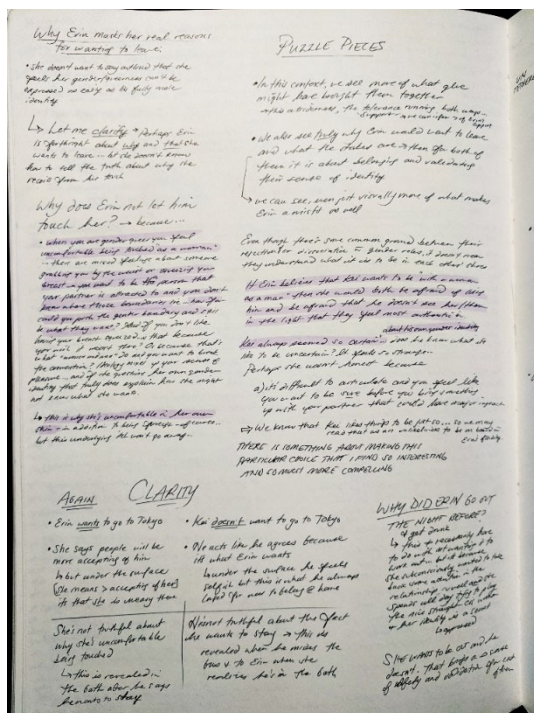 Why Erin masks her real reasons
for wanting to leave:
• She doesn't want to say outloud that she
feels her genderqueerness can't be
expressed as easily as be fully made
identity
↳ Let me clarify • Perhaps Erin
is forthright about why and that she
wants to leave — but she doesn't know
how to tell the truth about why she
from her touch
Why does Erin not let him
touch her? → because...
• when you are genderqueer you feel
uncomfortable being touched as a woman
there are mixed feelings about someone
you by the waist or your
breast — you want to be the person that
your partner is attracted to and you don't
know where those boundaries lie — how far
could you push the gender boundary and still
be what they want? And if you don't like
have your breast ... is that because
you don't want them? Or because that's
what do? do you want to break
the connection? messes w/ your sense of
pleasure ... and if she questions her own gender
identity that truly does explain how she might
not know what she wants.
↳ this is why she's uncomfortable in her own
skin — in addition to being
but this underlying
PUZZLE PIECES
• In this context, we see more of what glue
might have brought them together
→ the tolerance running both ways...
support
• We also see truly why Erin would want to leave
and what the stakes are → then for both of
them it is about belonging and validating
their sense of identity
↳ we can see, even just visually more of what makes
Erin a misfit as well
Even though there's some common ground between their
rejection or dissociation w/ gender roles, it doesn't mean
they understand what it is to be in each other's shoes
If Erin believes that Kai wants to be with a woman
"as a man" then she would both be afraid of losing
him and be afraid that he doesn't see her/them
in the light that they feel most authentic
about his own gender identity
Kai always seemed so certain... does he know what it's
like to be uncertain? It feels so strange...
Perhaps she wasn't honest because
a) it's difficult to articulate and you feel like
you want to be sure before you bring something
up with your partner that could have major impact
→ We know that Kai likes things to be just so... so we may
read that as an unwillingness to be as
THERE IS SOMETHING ABOUT MAKING THIS
PARTICULAR CHOICE THAT I FIND SO INTERESTING
AND SO MUCH MORE COMPELLING
AGAIN CLARITY
• Erin wants to go to Tokyo
• She says people will be
more accepting of him
↳ but under the surface
she means > accepting of her
it's that she is uneasy there
She's not truthful about
why she's uncomfortable
being touched
↳ this is revealed in
the bath after he says
he wants to stay
• Kai doesn't want to go to Tokyo
• He acts like he agrees because
it's what Erin wants
↳ under the surface he feels
but this is what he always
hoped for — now to belong @ home
He is not truthful about the fact
he wants to stay → this is
revealed when he
to Erin when she
realizes he's in the bath
WHY DID ERIN GO OUT
THE NIGHT BEFORE?
↳ this is necessarily have
to do with not wanting to
have ... but it because
she subconsciously wanted to
in the
relationship revealed she
spends all day trying to
the nice straight
her identity in a sense
suppressed
SHE WANTS TO be out and he
doesn't. That creates a sense
of safety and validation for each
of them